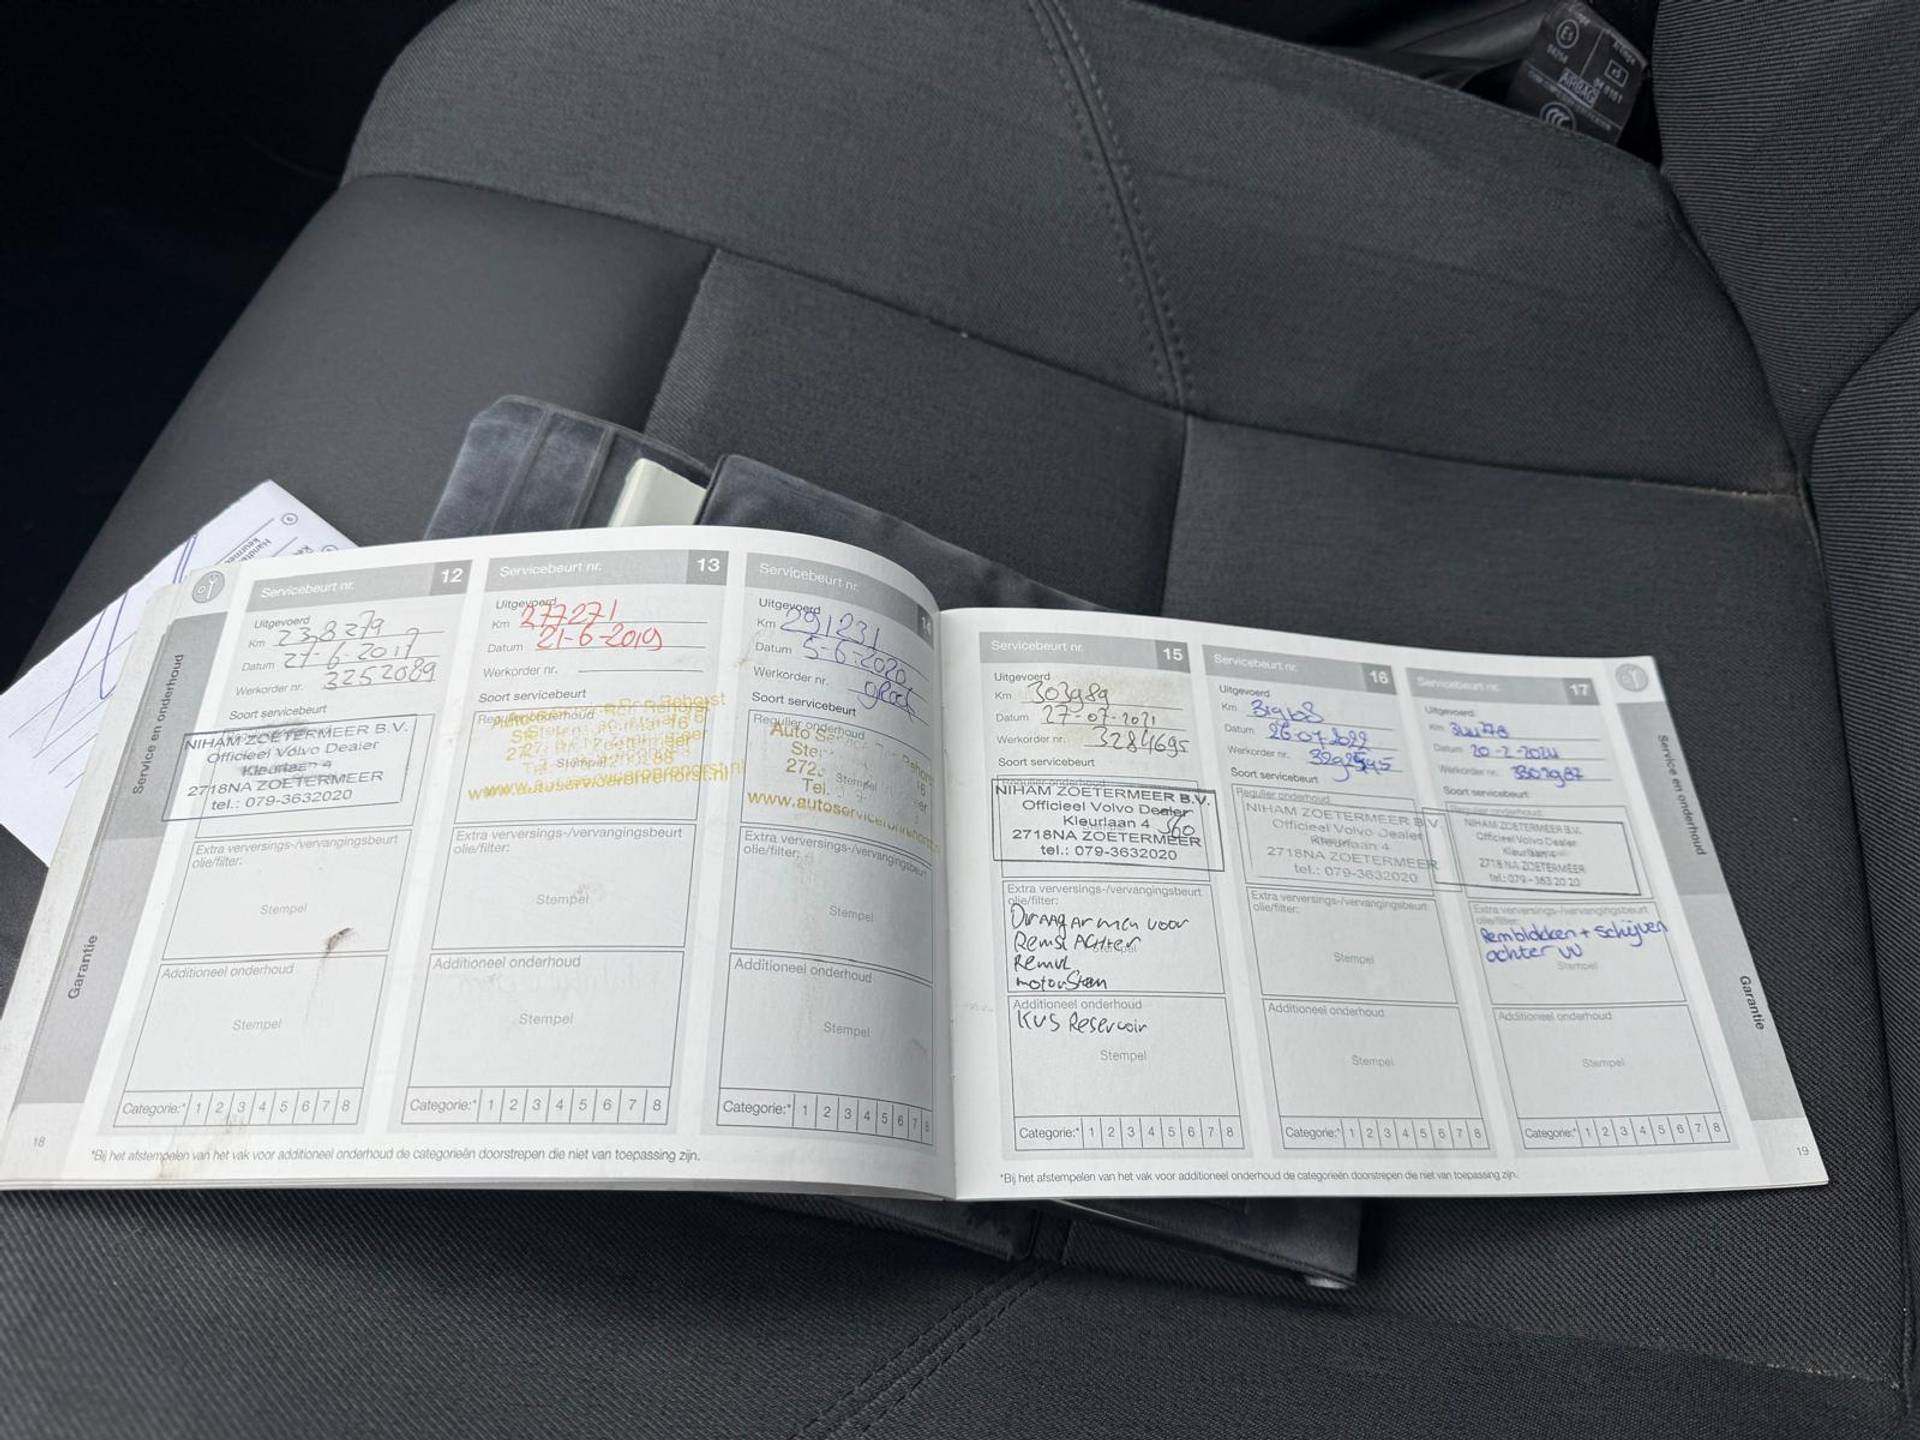 Service en onderhoud
Garantie
Servicebeurt nr. 12
Uitgevoerd
Km 238279
Datum 27-6-2017
Werkorder nr. 3252089
Soort servicebeurt
NIHAM ZOETERMEER B.V.
Officieel Volvo Dealer
Kleurlaan 4
2718NA ZOETERMEER
tel.: 079-3632020
Extra verversings-/vervangingsbeurt
olie/filter:
Stempel
Additioneel onderhoud
Stempel
Categorie:* 1 2 3 4 5 6 7 8
Servicebeurt nr. 13
Uitgevoerd
Km 277271
Datum 21-6-2019
Werkorder nr.
Soort servicebeurt
Regulier onderhoud
Stempel
Extra verversings-/vervangingsbeurt
olie/filter:
Stempel
Additioneel onderhoud
Stempel
Categorie:* 1 2 3 4 5 6 7 8
Servicebeurt nr. 14
Uitgevoerd
Km 291231
Datum 5-6-2020
Werkorder nr.
Soort servicebeurt
Regulier onderhoud
Auto
Stempel
272
Tel.
Extra verversings-/vervangingsbeurt
olie/filter:
Stempel
Additioneel onderhoud
Stempel
Categorie:* 1 2 3 4 5 6 7 8
18
*Bij het afstempelen van het vak voor additioneel onderhoud de categorieën doorstrepen die niet van toepassing zijn.
Servicebeurt nr. 15
Uitgevoerd
Km 303989
Datum 27-07-2021
Werkorder nr. 3284695
Soort servicebeurt
Regulier onderhoud
NIHAM ZOETERMEER B.V.
Officieel Volvo Dealer
Kleurlaan 4
2718NA ZOETERMEER
tel.: 079-3632020
Extra verversings-/vervangingsbeurt
olie/filter:
Draagarmen voor
Rems Achter
Remvl
motorSteen
Stempel
Additioneel onderhoud
KVS Reservoir
Stempel
Categorie:* 1 2 3 4 5 6 7 8
Servicebeurt nr. 16
Uitgevoerd
Km
Datum 26-07-2022
Werkorder nr.
Soort servicebeurt
Regulier onderhoud
NIHAM ZOETERMEER B.V.
Officieel Volvo Dealer
Kleurlaan 4
2718NA ZOETERMEER
tel.: 079-3632020
Extra verversings-/vervangingsbeurt
olie/filter:
Stempel
Additioneel onderhoud
Stempel
Categorie:* 1 2 3 4 5 6 7 8
Servicebeurt nr. 17
Uitgevoerd
Km
Datum 20-2-2024
Werkorder nr. 3302987
Soort servicebeurt
Regulier onderhoud
NIHAM ZOETERMEER B.V.
Officieel Volvo Dealer
Kleurlaan 4
2718 NA ZOETERMEER
tel.: 079 - 363 20 20
Extra verversings-/vervangingsbeurt
olie/filter:
Remblokken + schijven
achter VV
Stempel
Additioneel onderhoud
Stempel
Categorie:* 1 2 3 4 5 6 7 8
*Bij het afstempelen van het vak voor additioneel onderhoud de categorieën doorstrepen die niet van toepassing zijn.
19
Service en onderhoud
Garantie
AIRBAG